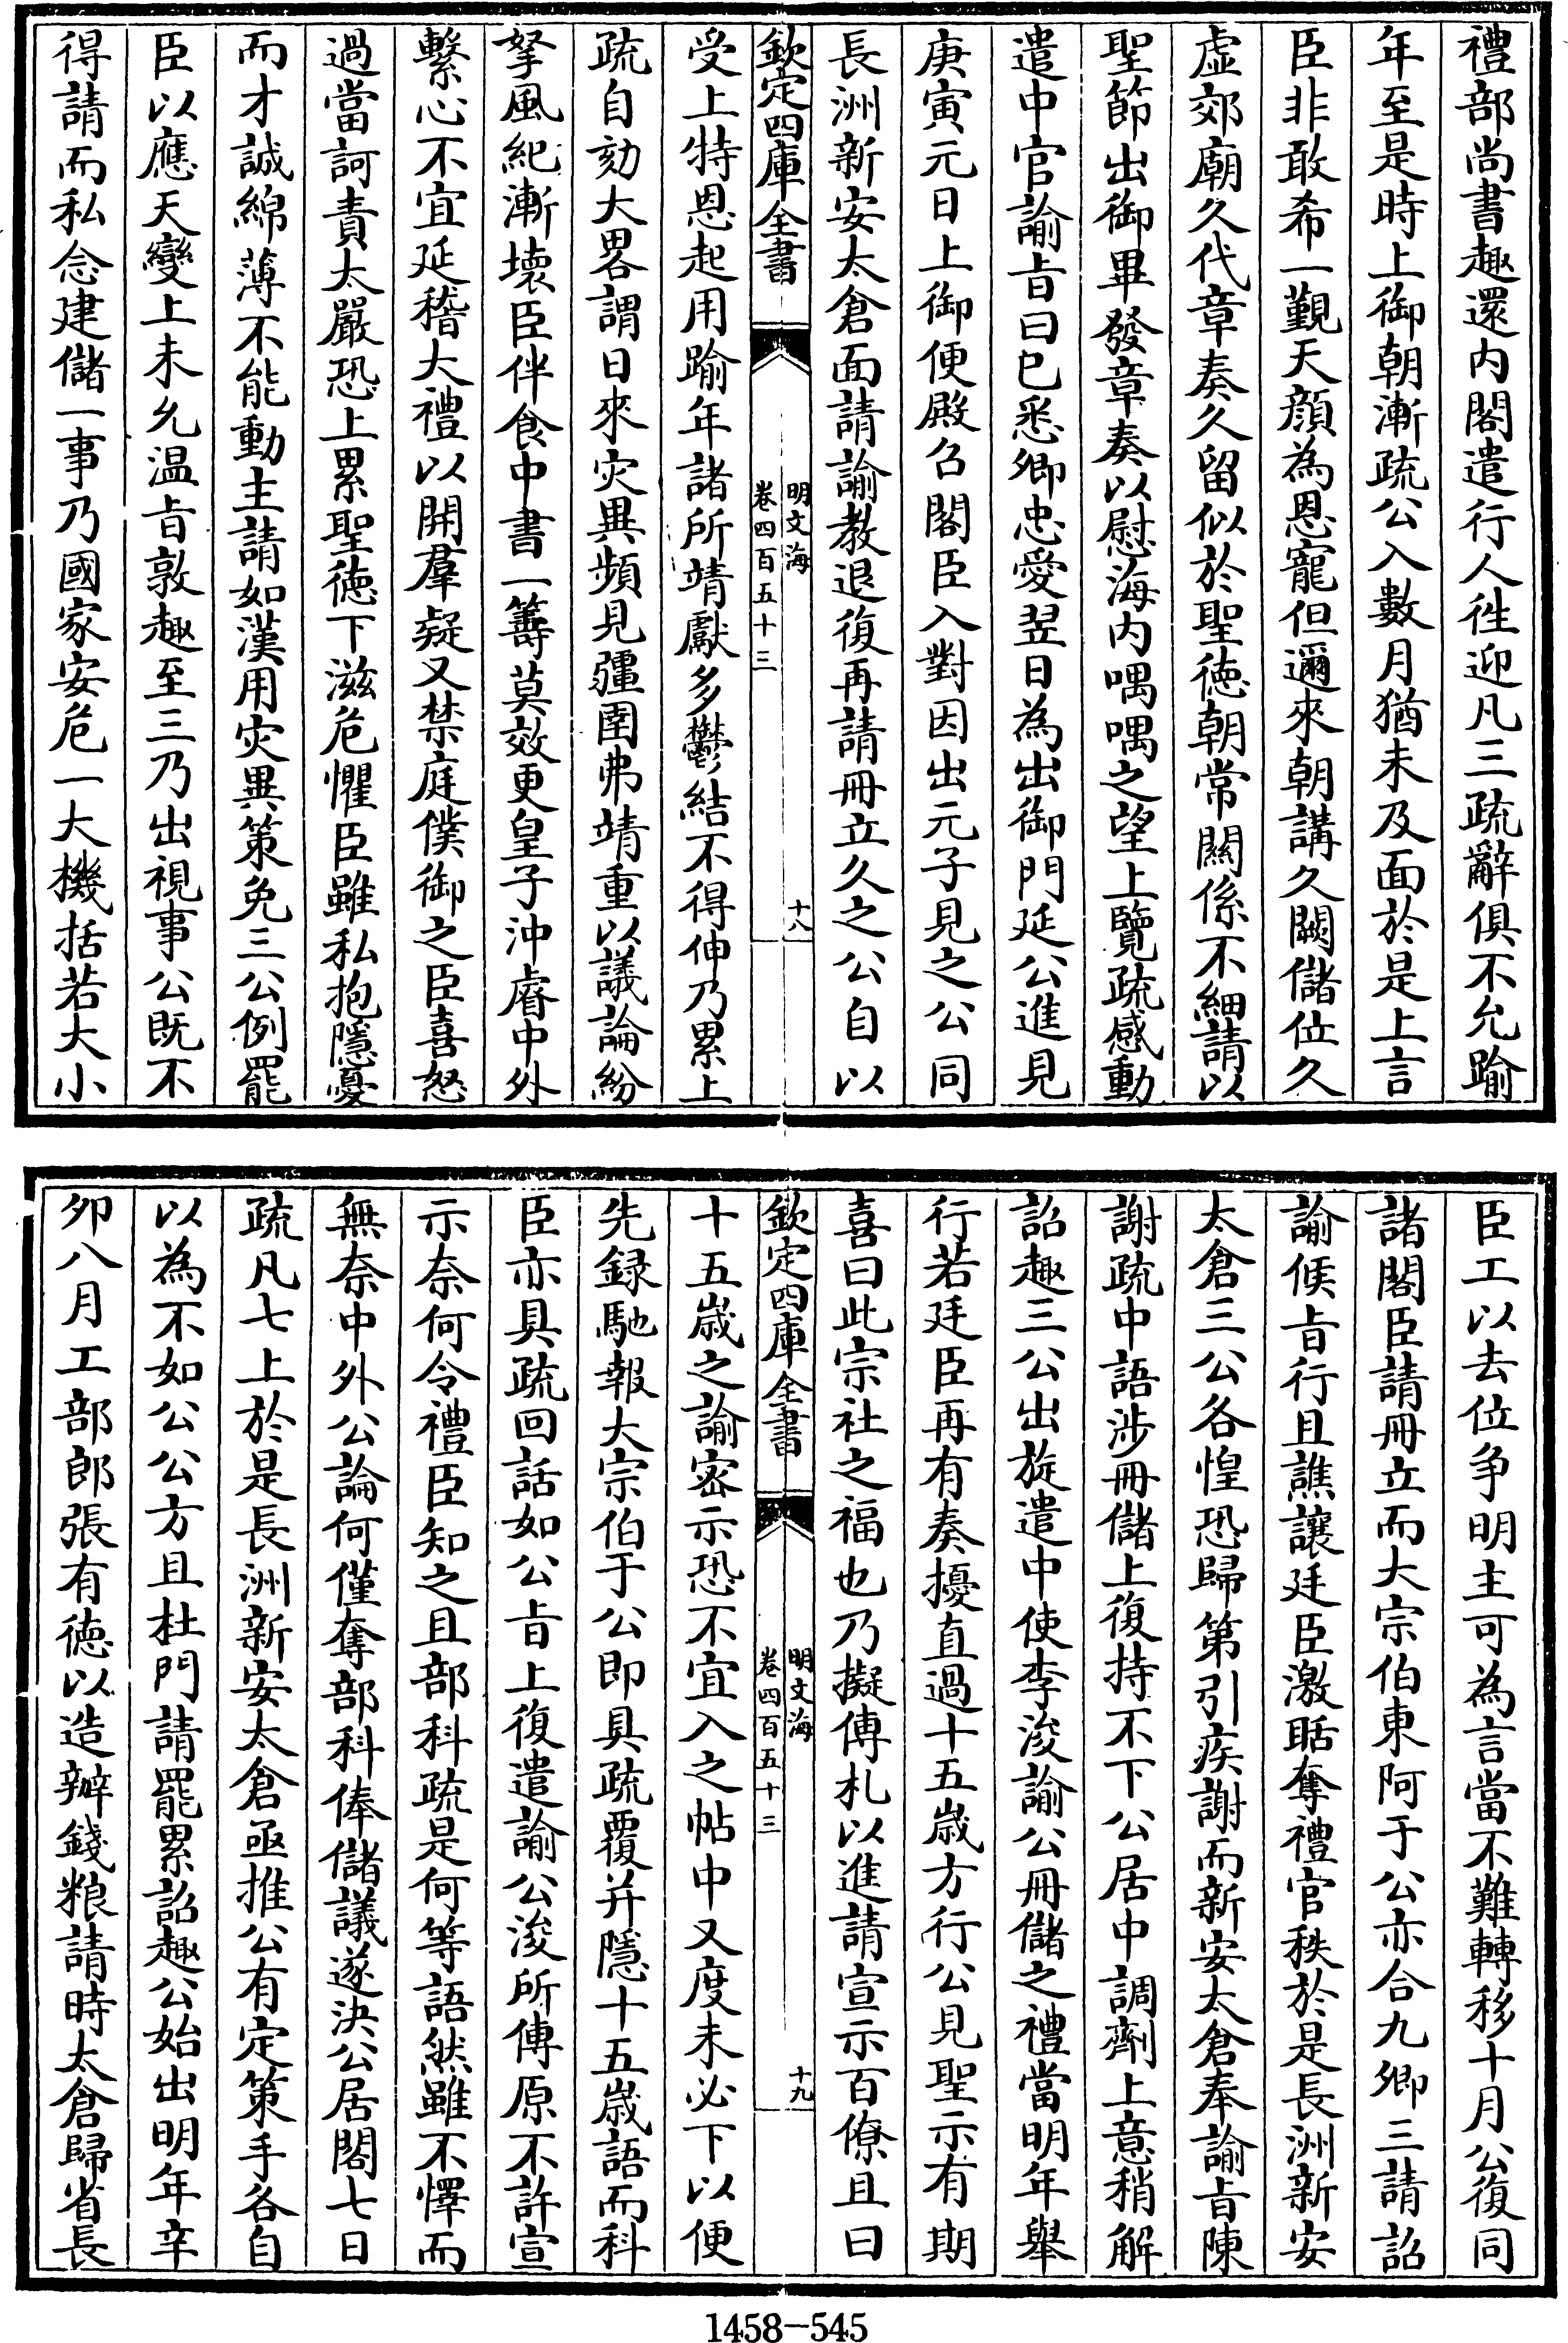 禮部尚書趣還内閣遣行人徃迎凡三疏辭俱不允踰
年至是時上御朝漸疏公入數月猶未及面於是上言
臣非敢希一覲天顔為恩寵但邇來朝講久闕儲位久
虛郊廟久代章奏久留似於聖徳朝常關係不細請以
聖節出御畢發章奏以慰海内喁喁之望上覽疏感動
遣中官諭㫖曰已悉卿忠愛翌日為出御門延公進見
庚寅元日上御便殿召閣臣入對因出元子見之公同
長洲新安太倉面請諭教退復再請冊立久之公自以
欽定四庫全書
明文海
卷四百五十三
十八
受上特恩起用踰年諸所靖獻多鬱結不得伸乃累上
疏自劾大畧謂日來灾異頻見疆圉弗靖重以議論紛
拏風紀漸壊臣伴食中書一籌莫效更皇子沖睿中外
繫心不宜延稽大禮以開羣疑又禁庭僕御之臣喜怒
過當訶責太嚴恐上累聖徳下滋危懼臣雖私抱隱憂
而才誠綿薄不能動主請如漢用灾異策免三公例罷
臣以應天變上未允温㫖敦趣至三乃出視事公既不
得請而私念建儲一事乃國家安危一大機括若大小
臣工以去位争明主可為言當不難轉移十月公復同
諸閣臣請冊立而大宗伯東阿于公亦合九卿三請詔
諭候㫖行且譙讓廷臣激聒奪禮官秩於是長洲新安
太倉三公各惶恐歸第引疾謝而新安太倉奉諭㫖陳
謝疏中語涉冊儲上復持不下公居中調劑上意稍解
詔趣三公出旋遣中使李浚諭公冊儲之禮當明年舉
行若廷臣再有奏擾直過十五嵗方行公見聖示有期
喜曰此宗社之福也乃擬傳札以進請宣示百僚且曰
欽定四庫全書
明文海
卷四百五十三
十九
十五嵗之諭密示恐不宜入之帖中又度未必下以便
先録馳報大宗伯于公即具疏覆并隱十五嵗語而科
臣亦具疏回話如公㫖上復遣諭公浚所傳原不許宣
示奈何令禮臣知之且部科疏是何等語然雖不懌而
無奈中外公論何僅奪部科俸儲議遂決公居閣七日
疏凡七上於是長洲新安太倉亟推公有定策手各自
以為不如公公方且杜門請罷累詔趣公始出明年辛
夘八月工部郎張有徳以造辦錢粮請時太倉歸省長
1458-545